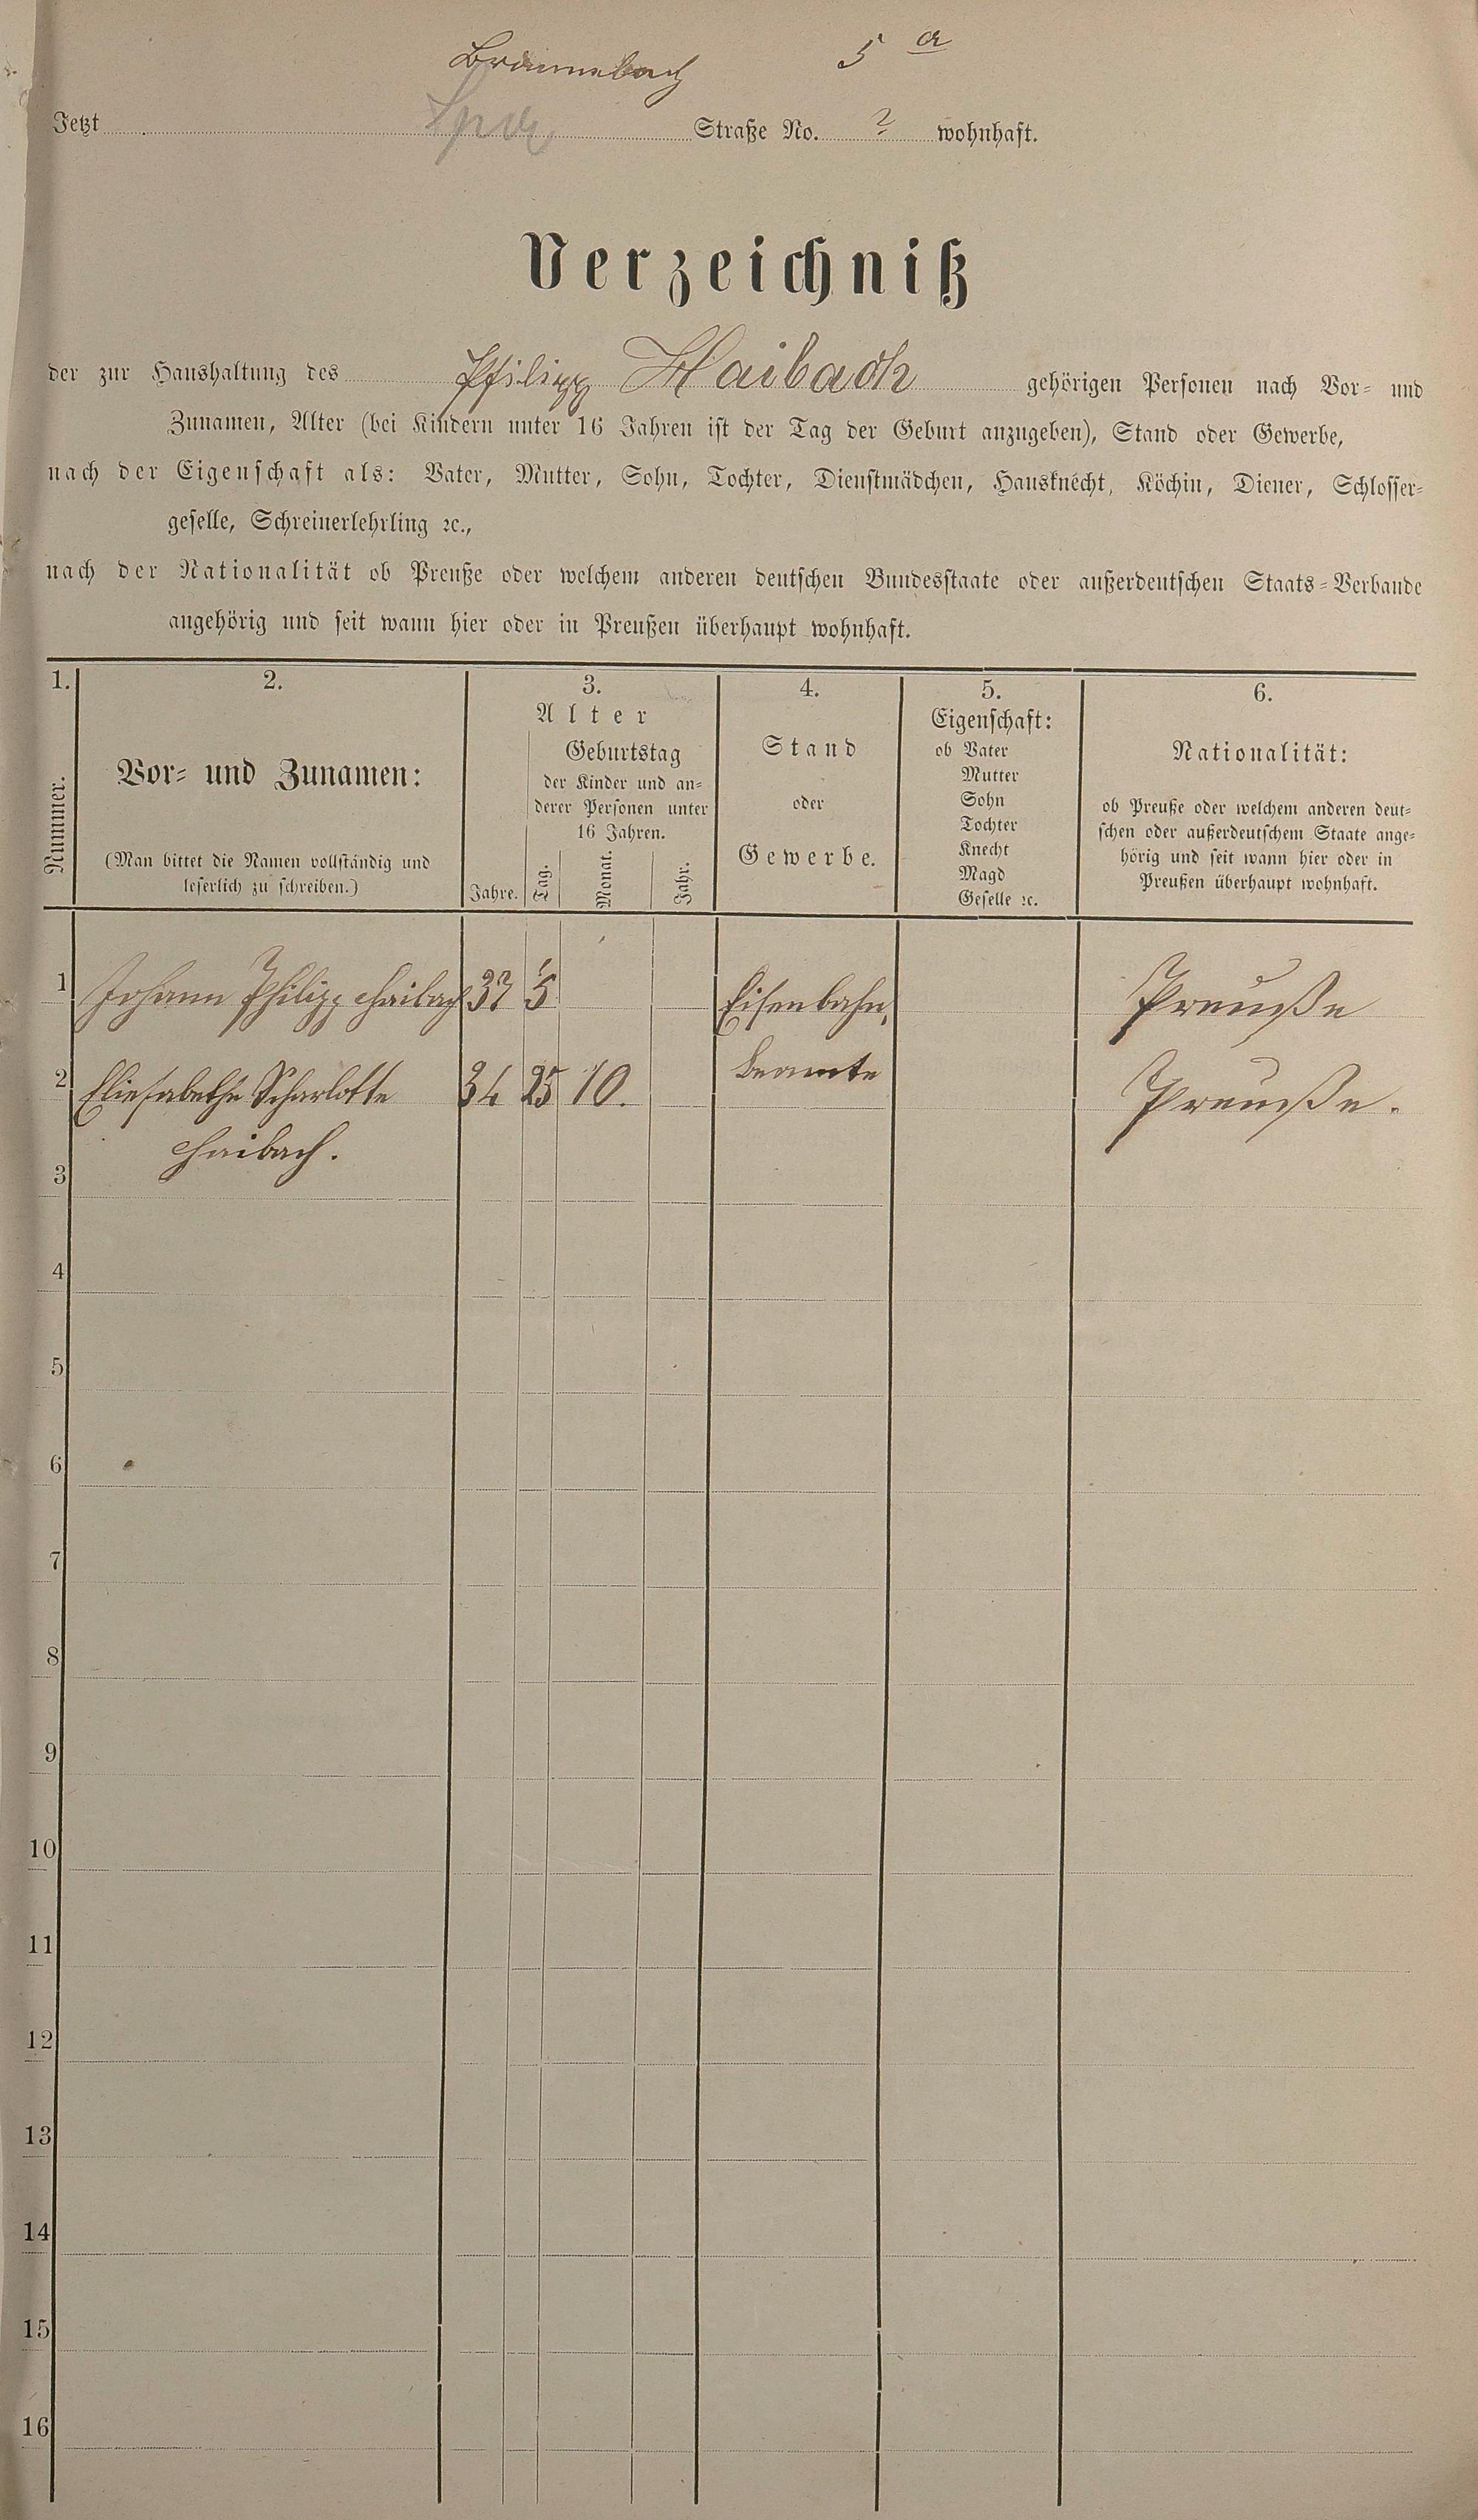 5 a
Jetzt Straße No. 2 wohnhaft.
Verzeichniß
der zur Haushaltung des Philipp Haibach gehörigen Personen nach Vor- und
Zunamen, Alter (bei Kindern unter 16 Jahren ist der Tag der Geburt anzugeben), Stand oder Gewerbe,
nach der Eigenschaft als: Vater, Mutter, Sohn, Tochter, Dienstmädchen, Hausknecht, Köchin, Diener, Schlosser-
geselle, Schreinerlehrling ꝛc.,
nach der Nationalität ob Preuße oder welchem anderen deutschen Bundesstaate oder außerdeutschen Staats-Verbande
angehörig und seit wann hier oder in Preußen überhaupt wohnhaft.
1. 2. 3. 4. 5. 6.
Nummer.
Vor- und Zunamen:
(Man bittet die Namen vollständig und
leserlich zu schreiben.)
Alter
Jahre.
Geburtstag
der Kinder und an-
derer Personen unter
16 Jahren.
Tag. Monat. Jahr.
Stand
oder
Gewerbe.
Eigenschaft:
ob Vater
Mutter
Sohn
Tochter
Knecht
Magd
Geselle ꝛc.
Nationalität:
ob Preuße oder welchem anderen deut-
schen oder außerdeutschem Staate ange-
hörig und seit wann hier oder in
Preußen überhaupt wohnhaft.
1 Johann Philipp Haibach 37 5 Eisenbahn, Preuße
2 Eliesabethe Scharlotte 34 25 10. beamte Preuße.
Haibach.
3
4
5
6
7
8
9
10
11
12
13
14
15
16